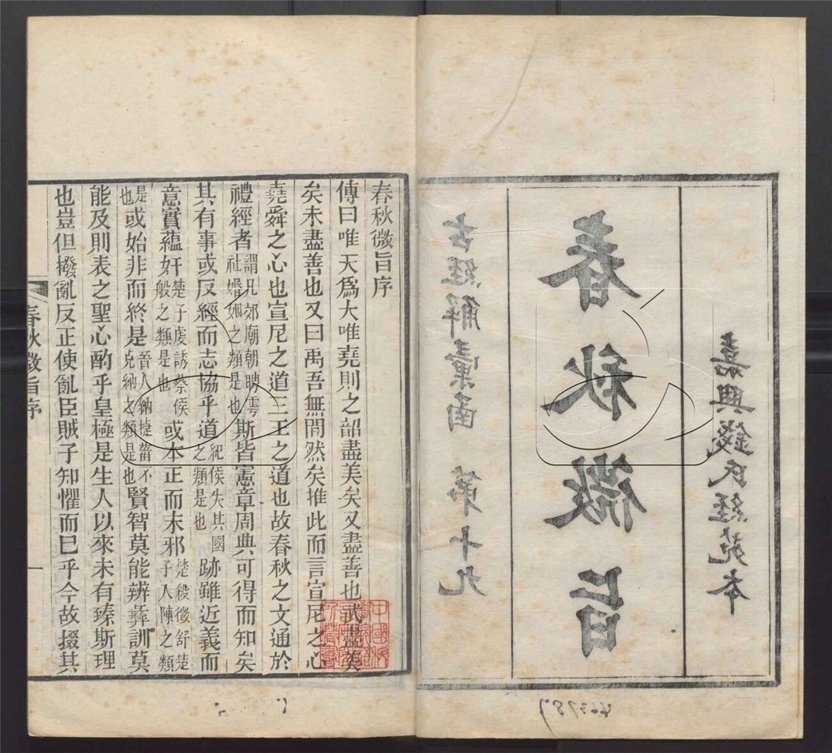 嘉興錢氏經苑本
春秋微旨
古經解彙函 第十九
春秋微旨序
傳曰唯天爲大唯堯則之韶盡美矣又盡善也武盡美
矣未盡善也又曰禹吾無閒然矣推此而言宣尼之心
堯舜之心也宣尼之道三王之道也故春秋之文通於
禮經者謂凡郊廟朝聘雩社婚姻之類是也斯皆憲章周典可得而知矣
其有事或反經而志協乎道紀侯失其國之類是也跡雖近義而
意實蘊奸楚子虔誘蔡侯般之類是也或本正而末邪楚殺徵舒楚子入陳之類
是也或始非而終是晉人納捷菑不克納之類是也賢智莫能辨彝訓莫
能及則表之聖心酌乎皇極是生人以來未有臻斯理
也豈但撥亂反正使亂臣賊子知懼而已乎今故掇其
春秋微旨序
一